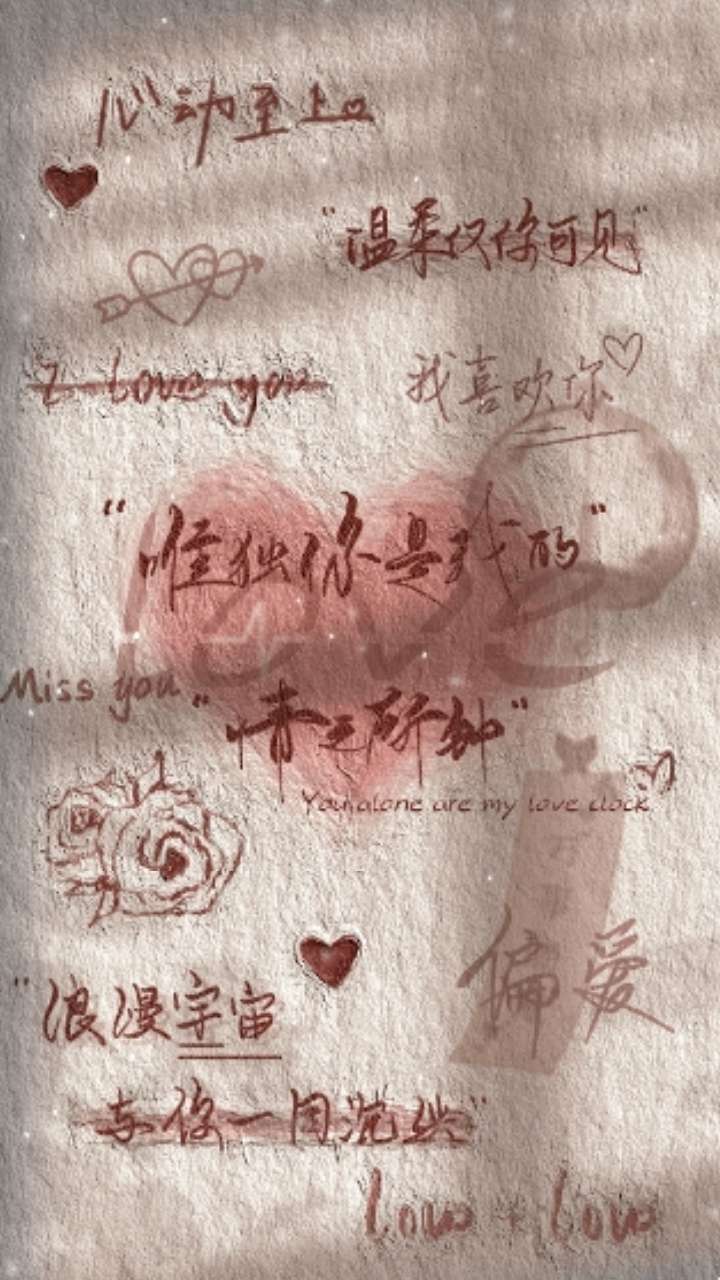 心动至上。
"温柔仅你可见"
I love you
我喜欢你
"唯独你是我的"
love
Miss you
"情之所钟"
You alone are my love clock
万事
偏爱
"浪漫宇宙
与你一同沉沦"
love + love